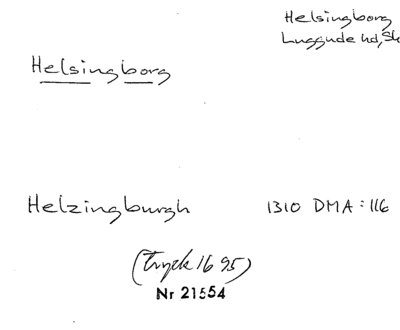 Helsingborg
Luggude hd, Sk
Helsingborg
Helzingburgh 1310 DMA:116
(tryck 1695)
Nr 21554